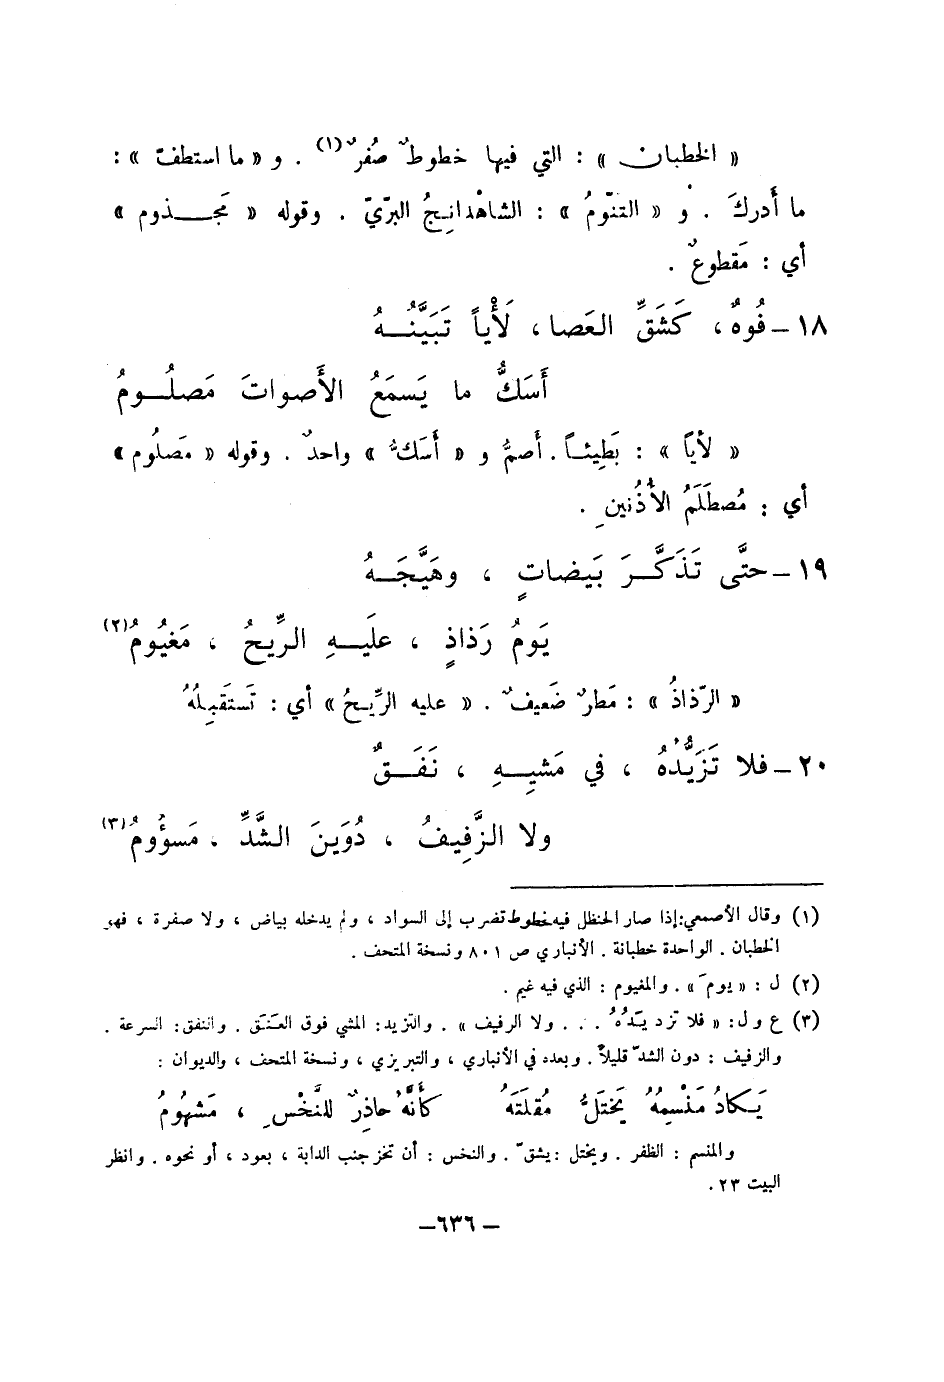 « الخطبان » : التي فيها خطوطٌ صُفرٌ(١) . و « ما استطفّ » :
ما أَدركَ . و « التنّومُ » : الشاهْدانِجُ البرّيّ . وقوله « مَجـذوم »
أي : مَقطوعٌ .
١٨ – فُوهٌ، كَشَقِّ العَصا، لَأْياً تَبَيَّنُـهُ
أَسَكُّ ما يَسمَعُ الأَصواتَ مَصلُـومُ
« لأياً » : بَطِيئـاً . أصمُّ و « أَسَكُّ » واحدٌ . وقوله « مَصلُوم »
أي : مُصطَلَمُ الأُذُنينِ .
١٩ – حتَّى تَذَكَّـرَ بَيضاتٍ ، وهَيَّجَـهُ
يَومُ رَذاذٍ ، علَيـهِ الرِّيحُ ، مَغيُومُ(٢)
« الرّذاذُ » : مَطرٌ ضَعيفٌ . « عليه الرِّيحُ » أي : تَستَقبِلُهُ
٢٠ – فلا تَزَيُّدُهُ ، في مَشيِـهِ ، نَفَـقٌ
ولا الزَّفِيفُ ، دُوَينَ الشَّدِّ ، مَسؤُومُ(٣)
(١) وقال الأصمعي: إذا صار الحنظل فيه خطوط تضرب إلى السواد ، ولم يدخله بياض ، ولا صفرة ، فهو
الخطبان . الواحدة خطبانة . الأنباري ص ٨٠١ ونسخة المتحف .
(٢) ل : « يومَ » . والمغيوم : الذي فيه غيم .
(٣) ع و ل: « فلا تزديّدُهُ . . . ولا الرفيف » . والتزيد: المشي فوق العَنَق . والنفق: السرعة .
والزفيف : دون الشدّ قليلاً . وبعده في الأنباري ، والتبريزي ، ونسخة المتحف ، والديوان :
يَـكادُ مَنْسِمُهُ يَختَلُّ مُقلَتَهُ كأَنَّهُ حاذِرٌ للنَّخْسِ ، مَشهُومُ
والمنسم : الظفر . ويختل : يشقّ . والنخس : أن تخز جنب الدابة ، بعود ، أو نحوه . وانظر
البيت ٢٣ .
– ٦٣٦ –